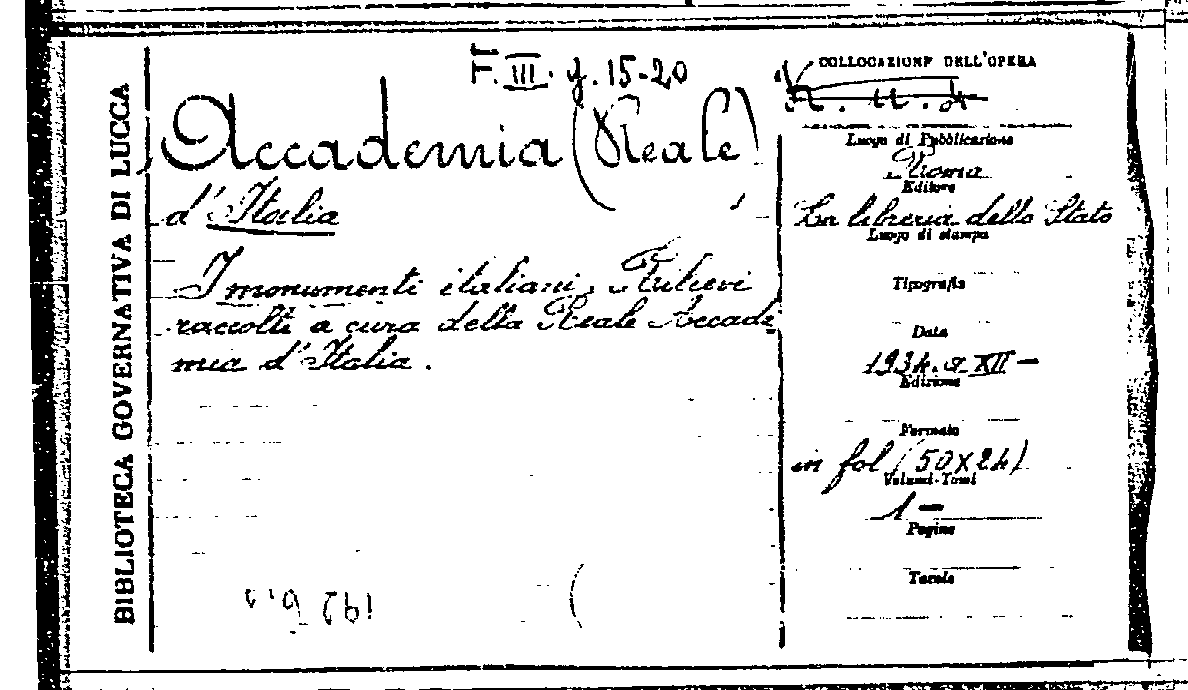 BIBLIOTECA GOVERNATIVA DI LUCCA
F. III. g. 15-20
Accademia (Reale)
d'Italia
I monumenti italiani. Rilievi
raccolti a cura della Reale Accade
mia d'Italia.
COLLOCAZIONE DELL'OPERA
Luogo di Pubblicazione
Roma
Editore
La libreria dello Stato
Luogo di stampa
Tipografia
Data
1934. a XII -
Edizione
Formato
in fol (50x24)
Volumi-Tomi
1 -
Pagine
Tavole